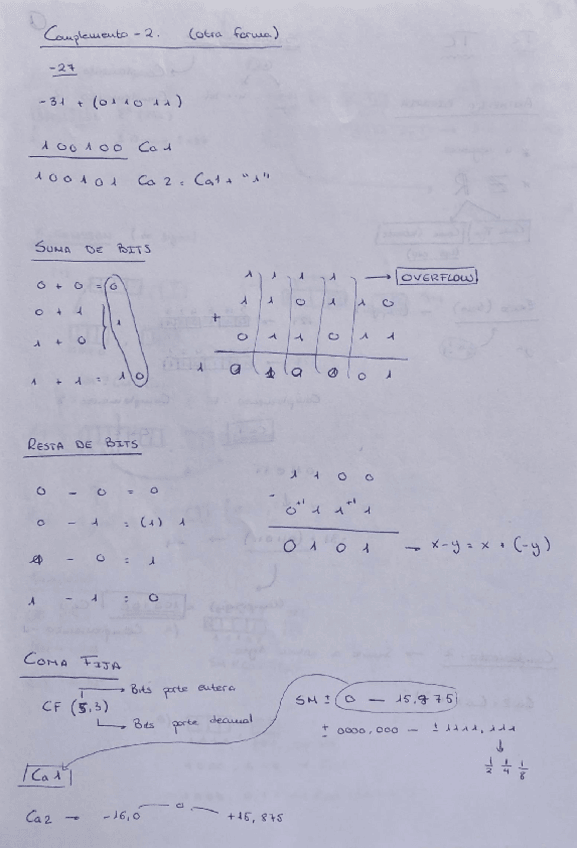 Complemento-2. (otra forma)
-27
-31 + (011011)
100100 Ca1
100101 Ca2 = Ca1 + "1"
SUMA DE BITS
0 + 0 = 0
0 + 1
1
1 + 0
1 + 1 = 10
1 1 1 1 → OVERFLOW
1 1 0 1 1 0
+
0 1 1 0 1 1
1 0 1 0 0 0 1
RESTA DE BITS
0 - 0 = 0
0 - 1 = (1) 1
1 - 0 = 1
1 - 1 = 0
1 1 0 0
-
0⁺¹ 1 1⁺¹ 1
0 1 0 1 → x-y = x + (-y)
COMA FIJA
CF (5,3)
Bits parte entera
Bits parte decimal
SM ± 0 — 15,875
± 0000,000 — ± 1111,111
1/2 1/4 1/8
Ca1
Ca2 → -16,0 — 0 — +15,875